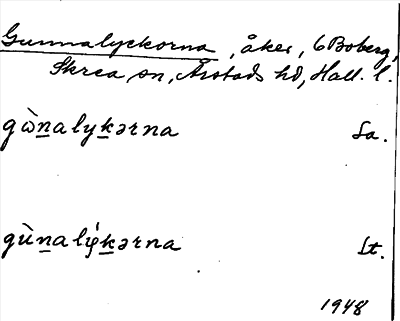 Gunnalyckorna, åker, 6 Boberg,
Skrea sn, Årstads hd, Hall. l.
gὼn̲alyk̲ərna Sa.
gùn̲alýk̲ərna It.
1948